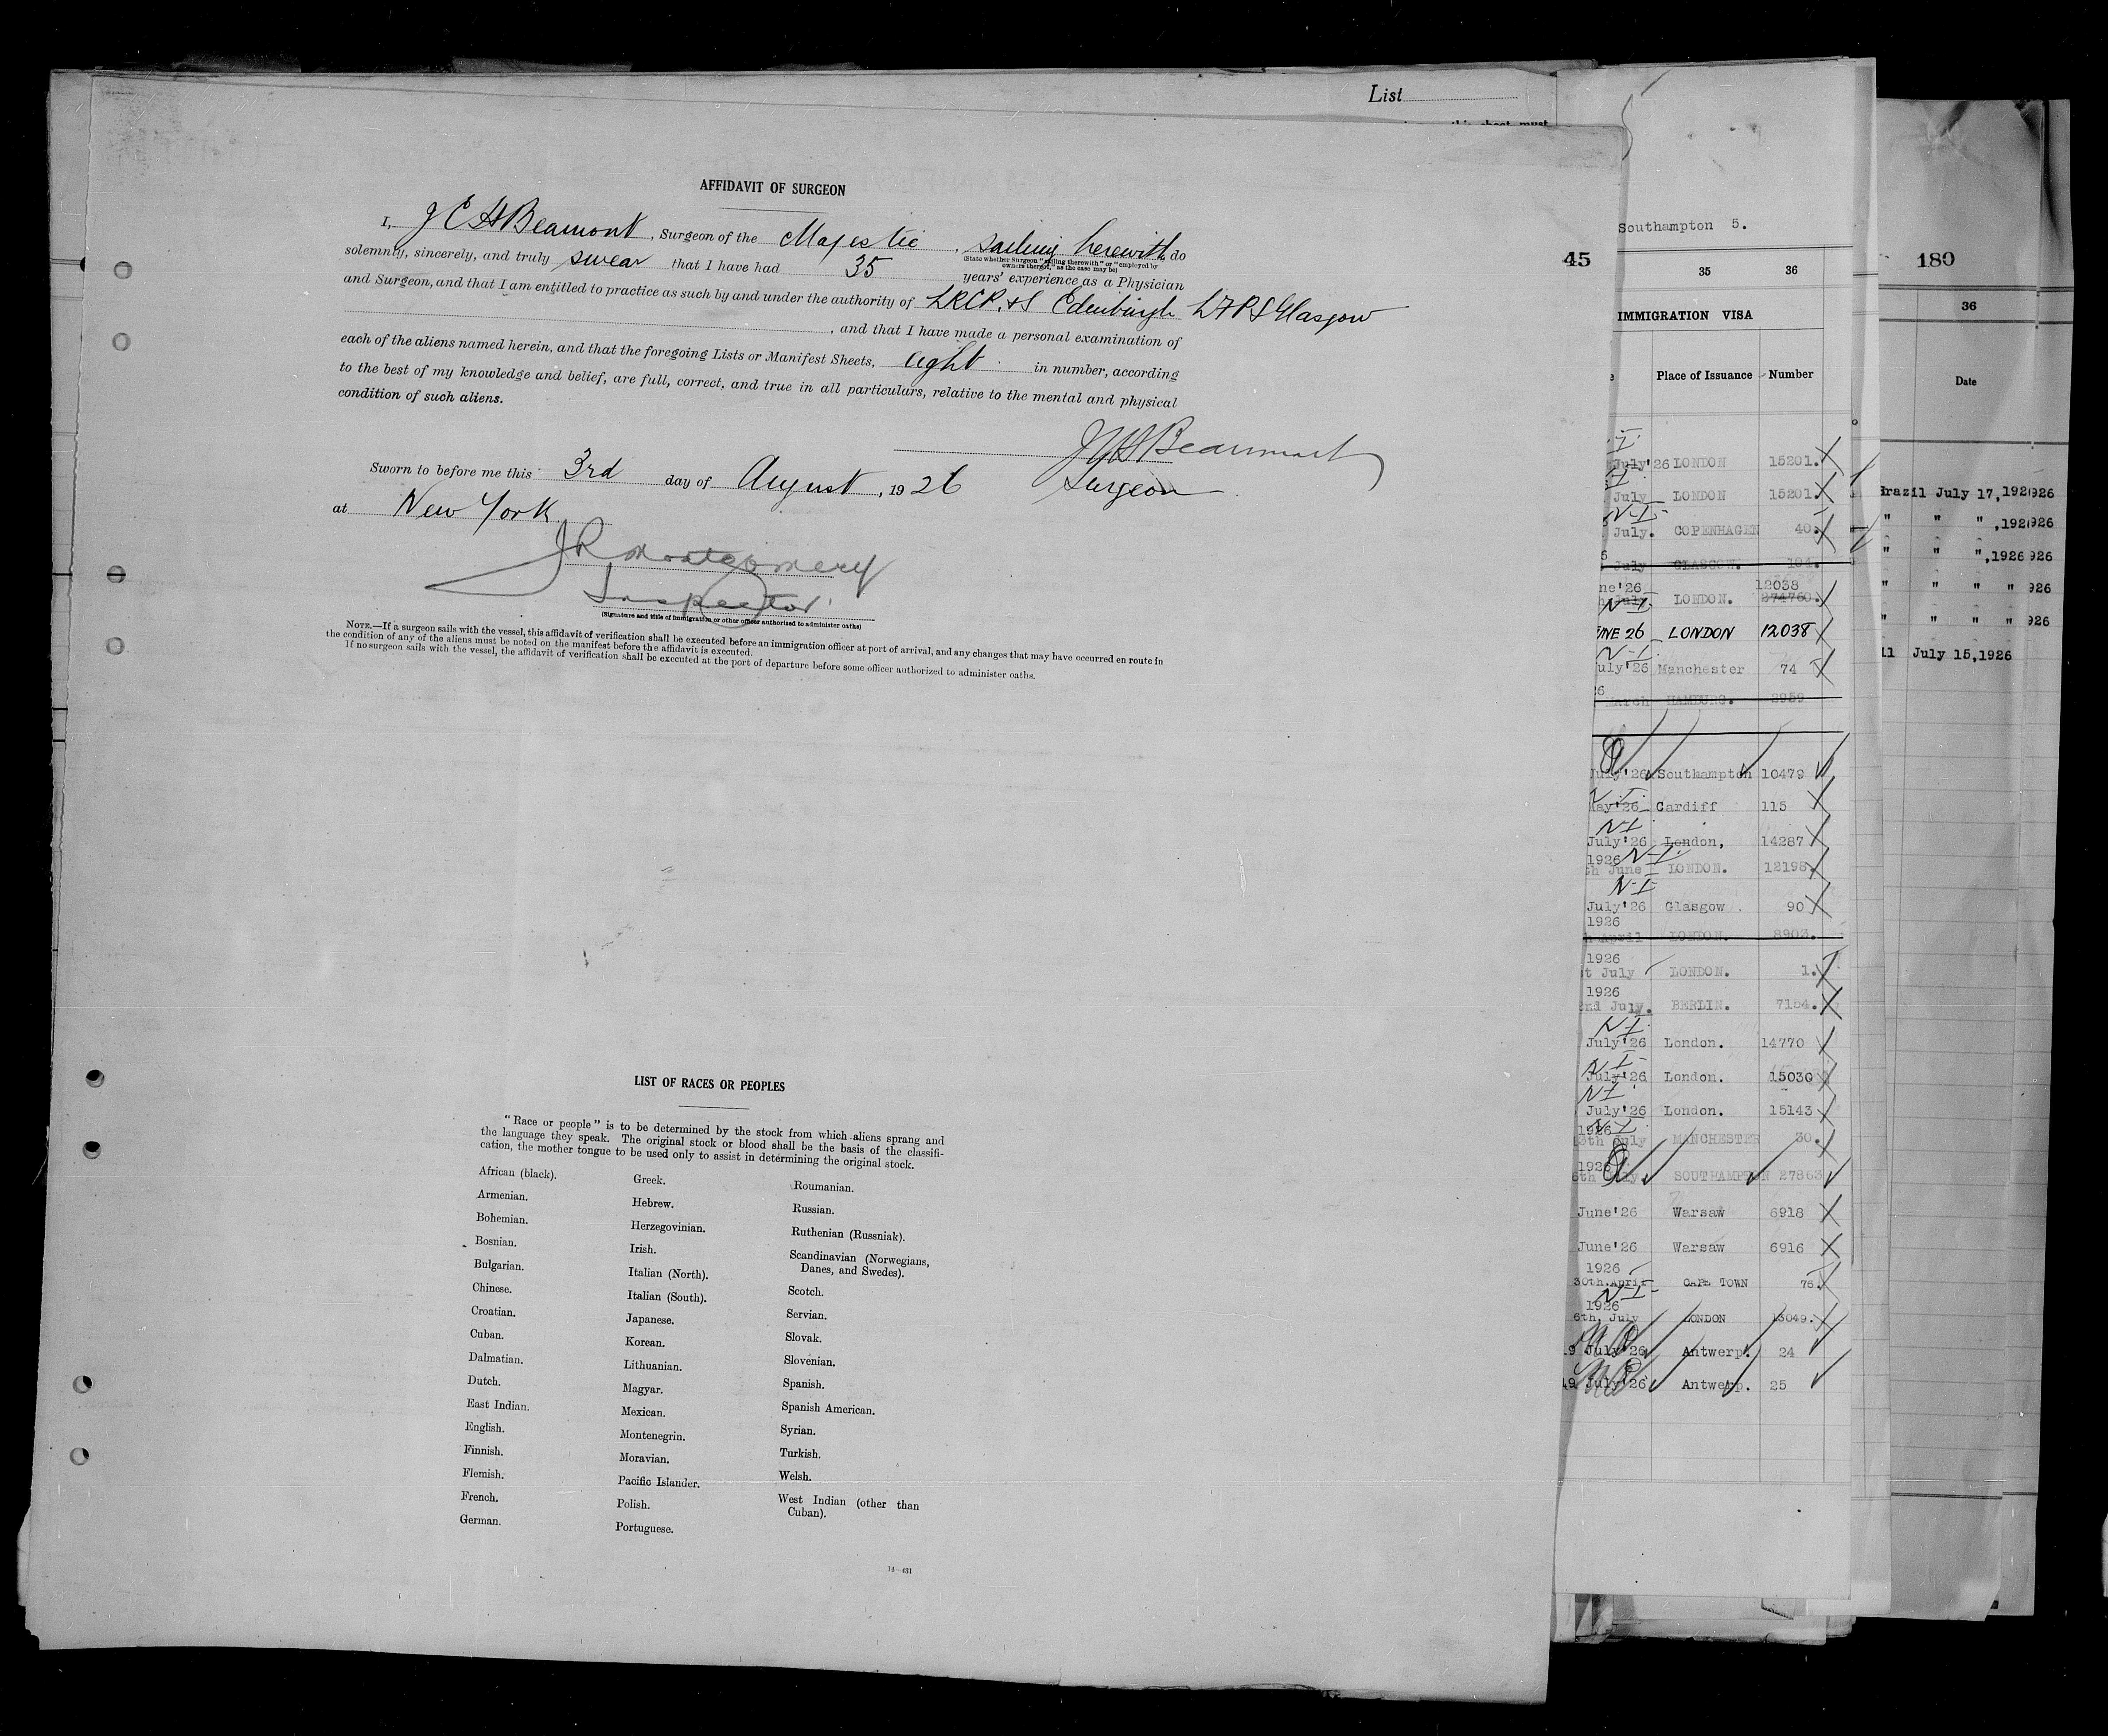 List
AFFIDAVIT OF SURGEON
I, J C H Beamont, Surgeon of the Majestic, sailing herewith, do
(State whether Surgeon "sailing therewith" or "employed by
owners thereof," as the case may be)
solemnly, sincerely, and truly swear that I have had 35 years' experience as a Physician
and Surgeon, and that I am entitled to practice as such by and under the authority of LRCP. & S Edinburgh LFPS Glasgow
, and that I have made a personal examination of
each of the aliens named herein, and that the foregoing Lists or Manifest Sheets, eight in number, according
to the best of my knowledge and belief, are full, correct, and true in all particulars, relative to the mental and physical
condition of such aliens.
Beaumont
Surgeon
Sworn to before me this 3rd day of August, 1926
at New York
J R Montgomery
Inspector
(Signature and title of immigration or other officer authorized to administer oaths)
NOTE.—If a surgeon sails with the vessel, this affidavit of verification shall be executed before an immigration officer at port of arrival, and any changes that may have occurred en route in
the condition of any of the aliens must be noted on the manifest before the affidavit is executed.
If no surgeon sails with the vessel, the affidavit of verification shall be executed at the port of departure before some officer authorized to administer oaths.
LIST OF RACES OR PEOPLES
"Race or people" is to be determined by the stock from which aliens sprang and
the language they speak. The original stock or blood shall be the basis of the classifi-
cation, the mother tongue to be used only to assist in determining the original stock.
African (black).
Armenian.
Bohemian.
Bosnian.
Bulgarian.
Chinese.
Croatian.
Cuban.
Dalmatian.
Dutch.
East Indian.
English.
Finnish.
Flemish.
French.
German.
Greek.
Hebrew.
Herzegovinian.
Irish.
Italian (North).
Italian (South).
Japanese.
Korean.
Lithuanian.
Magyar.
Mexican.
Montenegrin.
Moravian.
Pacific Islander.
Polish.
Portuguese.
Roumanian.
Russian.
Ruthenian (Russniak).
Scandinavian (Norwegians,
Danes, and Swedes).
Scotch.
Servian.
Slovak.
Slovenian.
Spanish.
Spanish American.
Syrian.
Turkish.
Welsh.
West Indian (other than
Cuban).
14—431
Southampton 5.
45
35 36
IMMIGRATION VISA
Place of Issuance Number
July'26 LONDON 15201.
July LONDON 15201.
N-I-
July. COPENHAGEN 40.
July GLASGOW. 104.
12038
July. LONDON. 274760.
26 LONDON 12038
N-I.
July'26 Manchester 74
March HAMBURG. 2959
July'26 Southampton 10479
May'26 Cardiff 115
NI
July'26 London, 14287
1926 N-I.
June LONDON. 12198
N-I-
July'26 Glasgow 90
1926
April LONDON. 8903.
1926
July LONDON. 1.
1926
July. BERLIN. 7154.
NI
July'26 London. 14770
NI-
July'26 London. 15030
NI
July'26 London. 15143
1926
13th July MANCHESTER 30.
1926
July SOUTHAMPTON 27863
June'26 Warsaw 6918
June'26 Warsaw 6916
1926
30th April CAPE TOWN 76.
N-I-
1926
6th. July LONDON 13049.
19 July'26 Antwerp. 24
19 July'26 Antwerp. 25
180
36
Date
Brazil July 17, 1926
" " " ,1926
" " " ,1926
" " " "
" " " "
July 15,1926